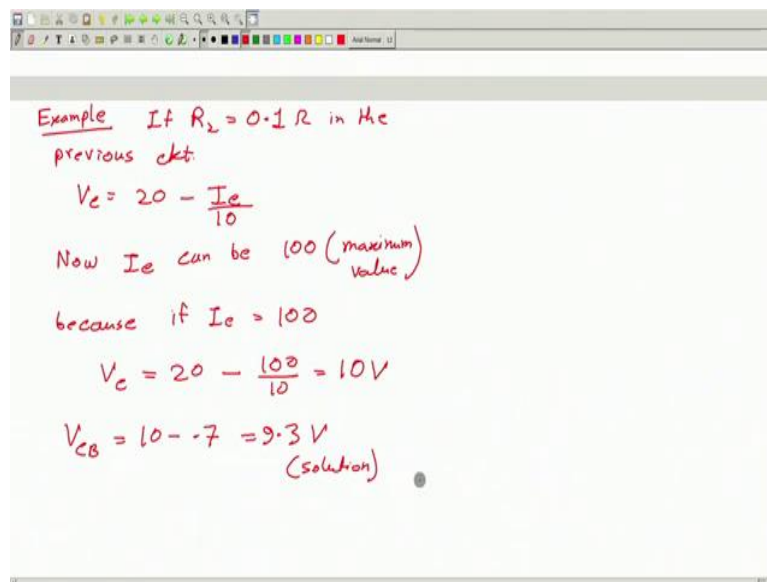 Example If R₂ = 0.1 Ω in the
previous ckt.
Vc = 20 - Ic/10
Now Ic can be 100 (maximum value)
because if Ic = 100
Vc = 20 - 100/10 = 10V
VCB = 10 - .7 = 9.3 V
(solution)